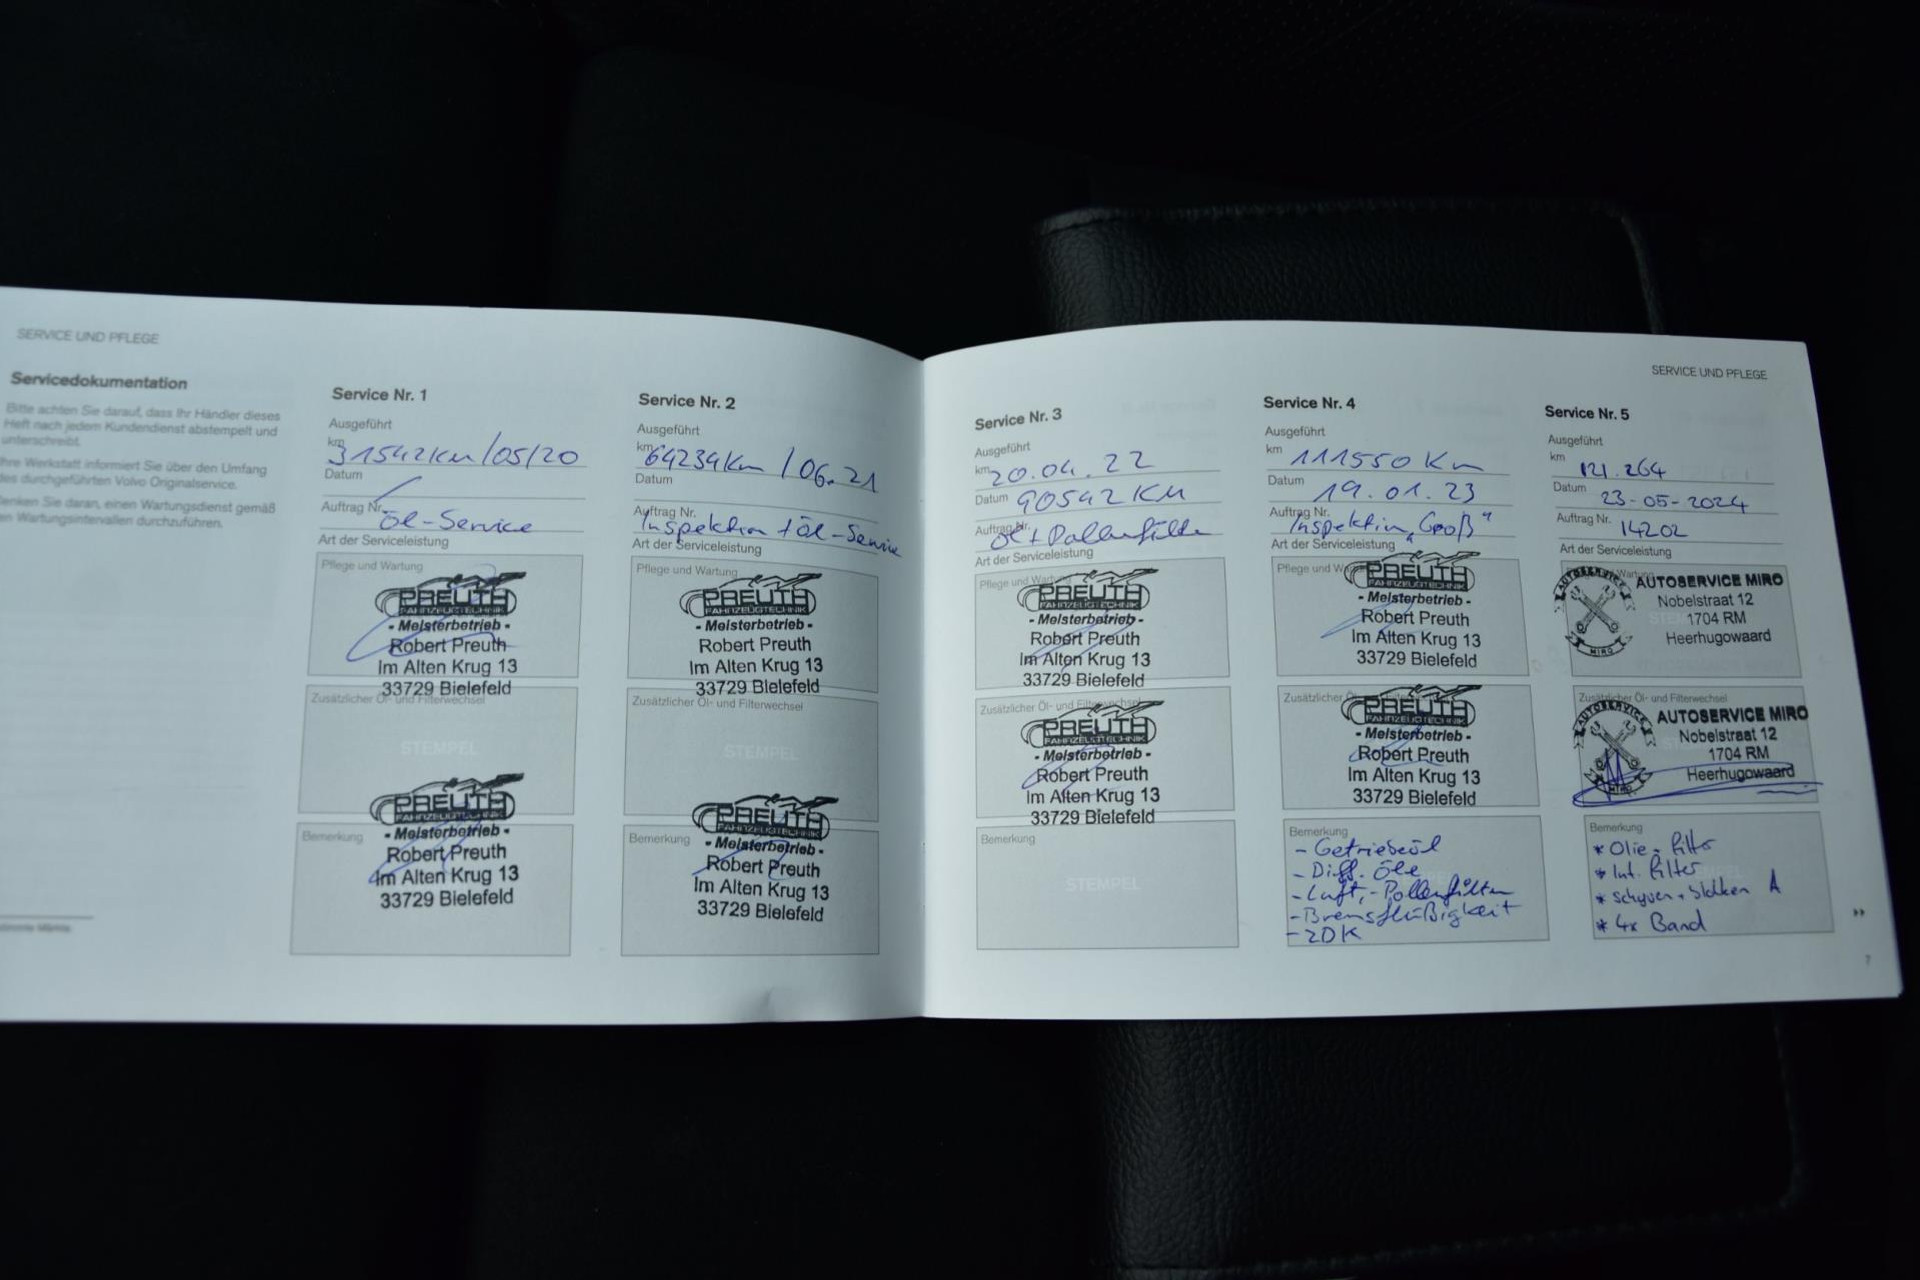 SERVICE UND PFLEGE
Servicedokumentation
Bitte achten Sie darauf, dass Ihr Händler dieses
Heft nach jedem Kundendienst abstempelt und
unterschreibt.
Ihre Werkstatt informiert Sie über den Umfang
des durchgeführten Volvo Originalservice.
Denken Sie daran, einen Wartungsdienst gemäß
den Wartungsintervallen durchzuführen.
Service Nr. 1
Ausgeführt
km 31542km/05/20
Datum
Auftrag Nr. Öl-Service
Art der Serviceleistung
Pflege und Wartung
PREUTH
FAHRZEUGTECHNIK
- Meisterbetrieb -
Robert Preuth
Im Alten Krug 13
33729 Bielefeld
Zusätzlicher Öl- und Filterwechsel
STEMPEL
PREUTH
FAHRZEUGTECHNIK
Bemerkung
- Meisterbetrieb -
Robert Preuth
Im Alten Krug 13
33729 Bielefeld
Service Nr. 2
Ausgeführt
km 64234km /06.21
Datum
Auftrag Nr.
Inspektion + Öl-Service
Art der Serviceleistung
Pflege und Wartung
PREUTH
FAHRZEUGTECHNIK
- Meisterbetrieb -
Robert Preuth
Im Alten Krug 13
33729 Bielefeld
Zusätzlicher Öl- und Filterwechsel
STEMPEL
PREUTH
FAHRZEUGTECHNIK
Bemerkung
- Meisterbetrieb -
Robert Preuth
Im Alten Krug 13
33729 Bielefeld
SERVICE UND PFLEGE
Service Nr. 3
Ausgeführt
km 20.04.22
Datum 90542 KM
Auftrag Nr. Öl + Pollenfilter
Art der Serviceleistung
Pflege und Wartung
PREUTH
FAHRZEUGTECHNIK
- Meisterbetrieb -
Robert Preuth
Im Alten Krug 13
33729 Bielefeld
Zusätzlicher Öl- und Filterwechsel
PREUTH
FAHRZEUGTECHNIK
- Meisterbetrieb -
Robert Preuth
Im Alten Krug 13
33729 Bielefeld
Bemerkung
STEMPEL
Service Nr. 4
Ausgeführt
km 111550 Km
Datum 19.01.23
Auftrag Nr.
Inspektion „Groß"
Art der Serviceleistung
Pflege und Wartung
PREUTH
FAHRZEUGTECHNIK
- Meisterbetrieb -
Robert Preuth
Im Alten Krug 13
33729 Bielefeld
Zusätzlicher Öl- und Filterwechsel
PREUTH
FAHRZEUGTECHNIK
- Meisterbetrieb -
Robert Preuth
Im Alten Krug 13
33729 Bielefeld
Bemerkung
- Getriebeöl
- Diff. Öle
- Luft,- Pollenfilter
- Bremsflüßigkeit
- ZDK
Service Nr. 5
Ausgeführt
km 121.264
Datum 23-05-2024
Auftrag Nr. 14202
Art der Serviceleistung
Wartung
AUTOSERVICE
MIRO
AUTOSERVICE MIRO
Nobelstraat 12
1704 RM
Heerhugowaard
Zusätzlicher Öl- und Filterwechsel
AUTOSERVICE
MIRO
AUTOSERVICE MIRO
Nobelstraat 12
1704 RM
Heerhugowaard
Bemerkung
* Olie + filter
* Int. filter
* Schyven + blokken A
* 4x Band
7